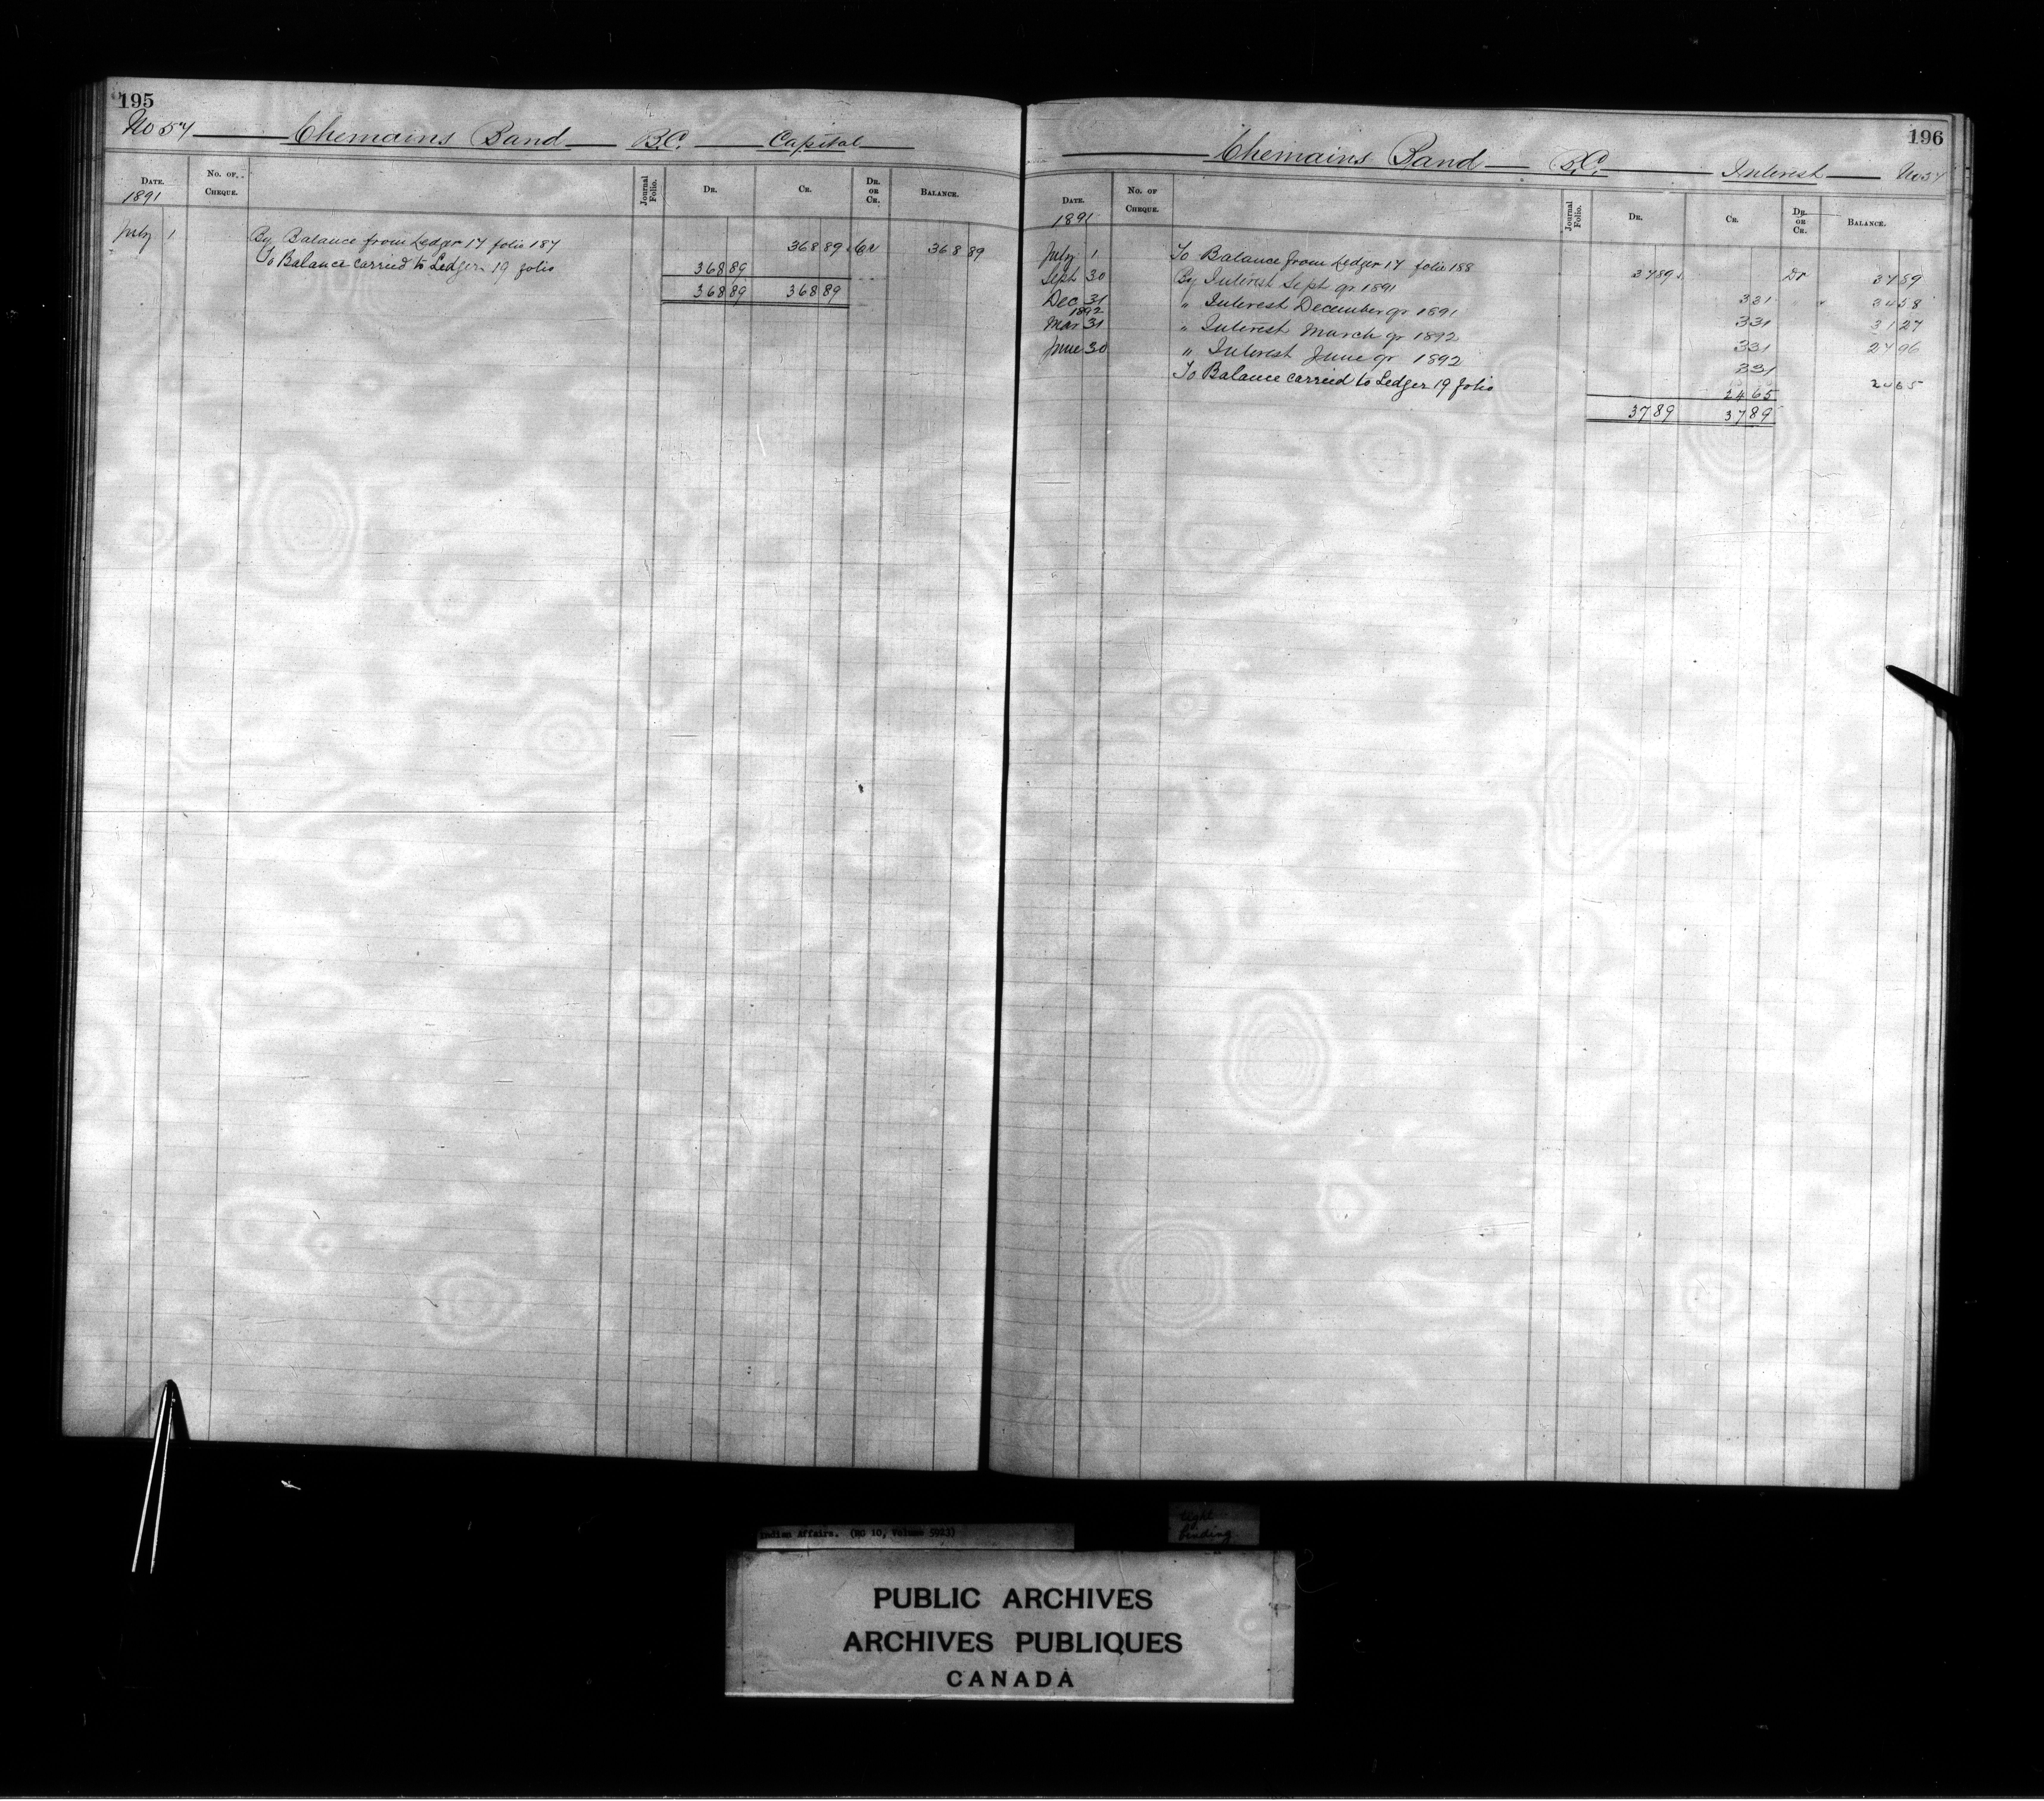 195
No 57 Chemains Band B.C. Capital
Date. No. of Cheque. Journal Folio. Dr. Cr. Dr. or Cr. Balance.
1891
July 1 By Balance from Ledger 17 folio 187 368 89 Cr 368 89
To Balance carried to Ledger 19 folio 368 89
368 89 368 89
196
Chemains Band B.C. Interest No 57
Date. No. of Cheque. Journal Folio. Dr. Cr. Dr. or Cr. Balance.
1891
July 1 To Balance from Ledger 17 folio 188 37 89 Dr 37 89
Sept 30 By Interest Sept qr 1891 3 31 " 34 58
Dec 31 " Interest December qr 1891 3 31 31 27
1892
Mar 31 " Interest March qr 1892 3 31 27 96
June 30 " Interest June qr 1892 3 31 24 65
To Balance carried to Ledger 19 folio 24 65
37 89 37 89
Indian Affairs. (RG 10, Volume 5923)
tight
binding
PUBLIC ARCHIVES
ARCHIVES PUBLIQUES
CANADA